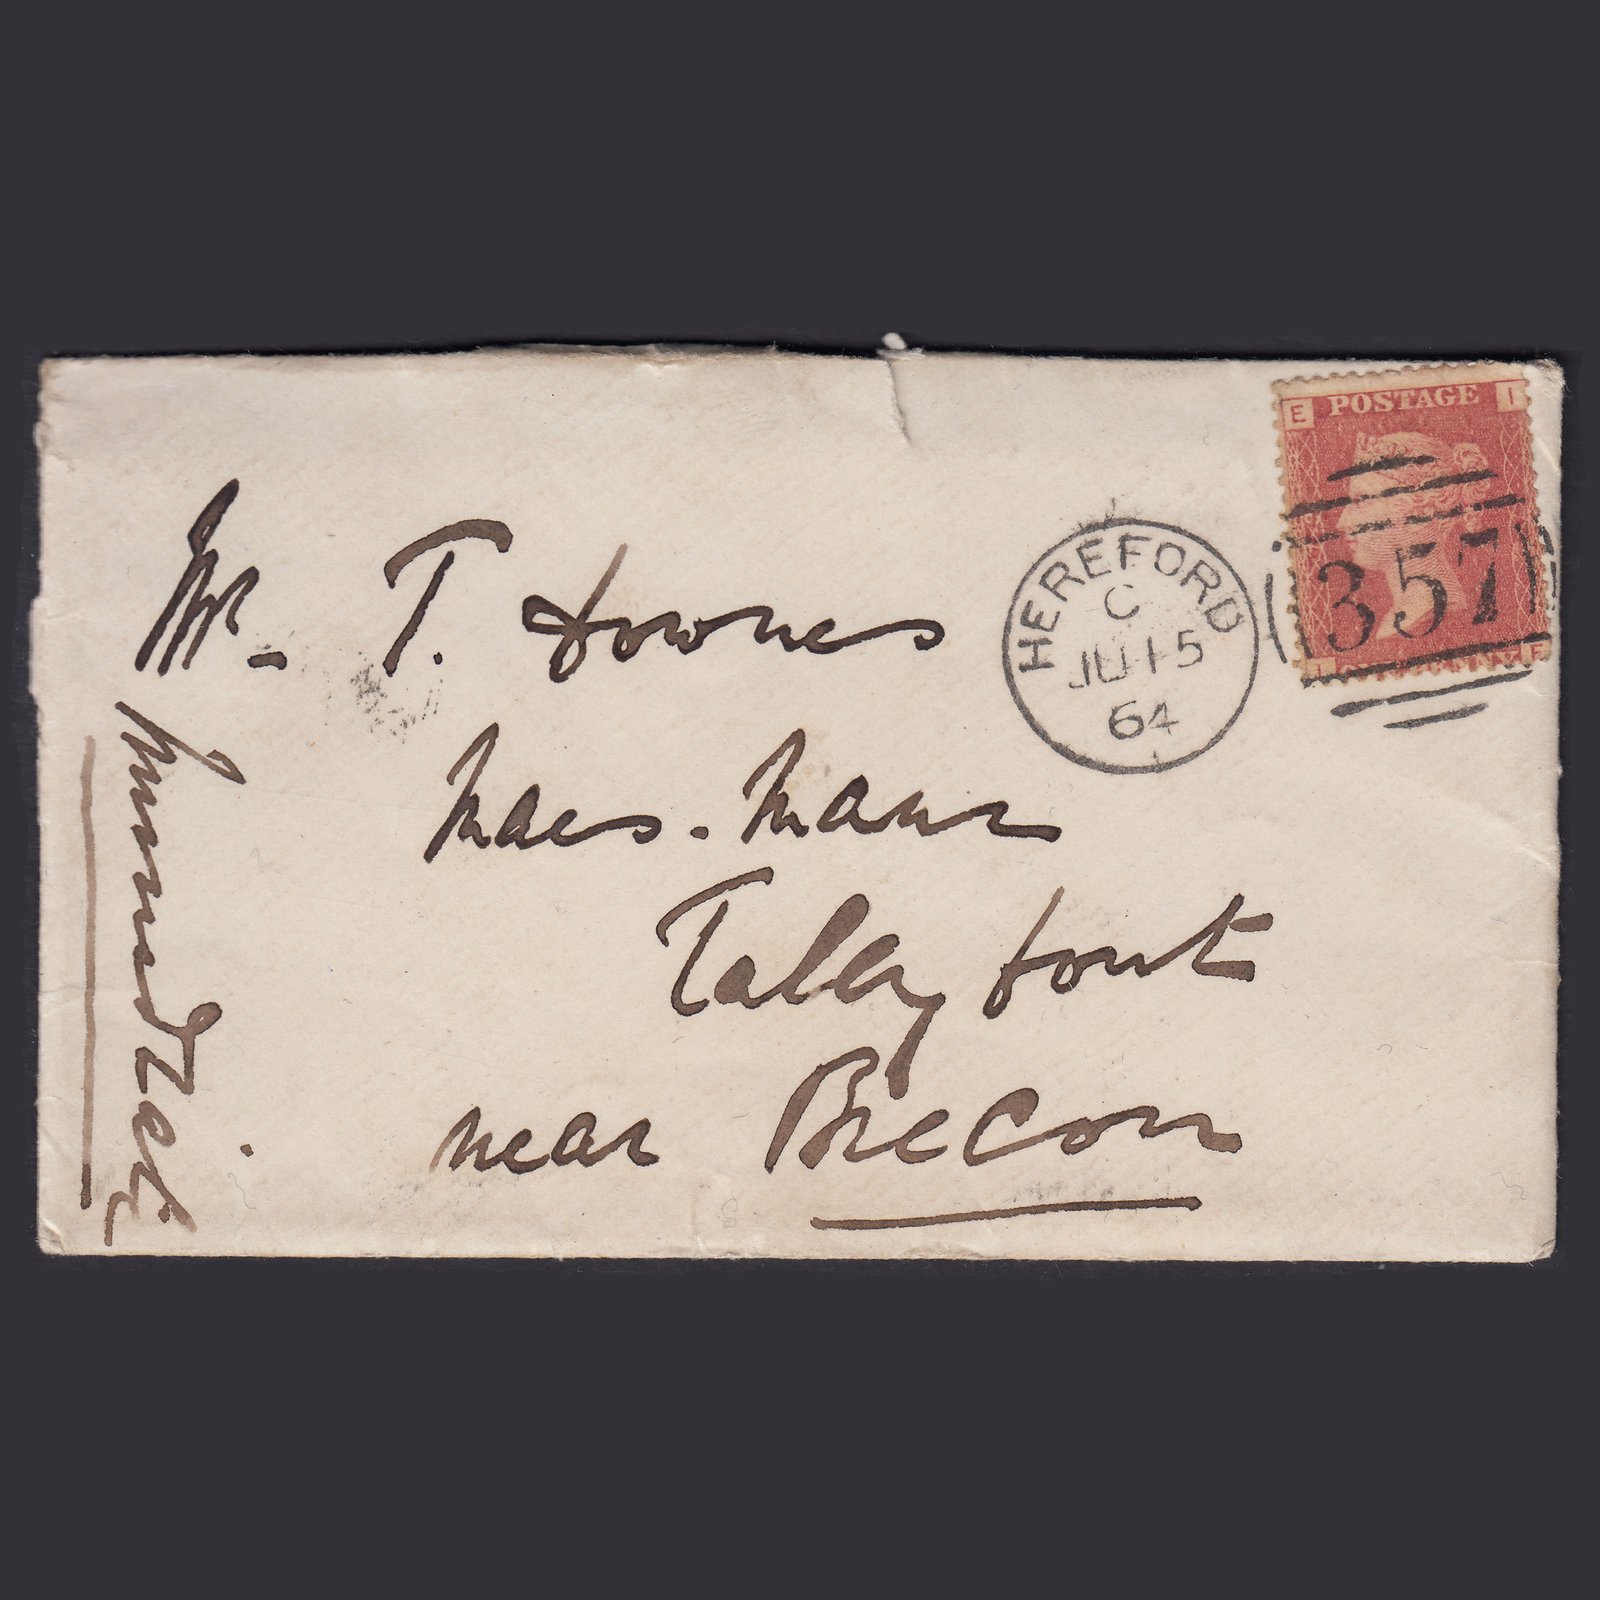 E POSTAGE I
357
L ONE PENNY E
HEREFORD
C
JU 15
64
Mr. T. Downes
Maes. Mawr
Tallyfont
near Brecon